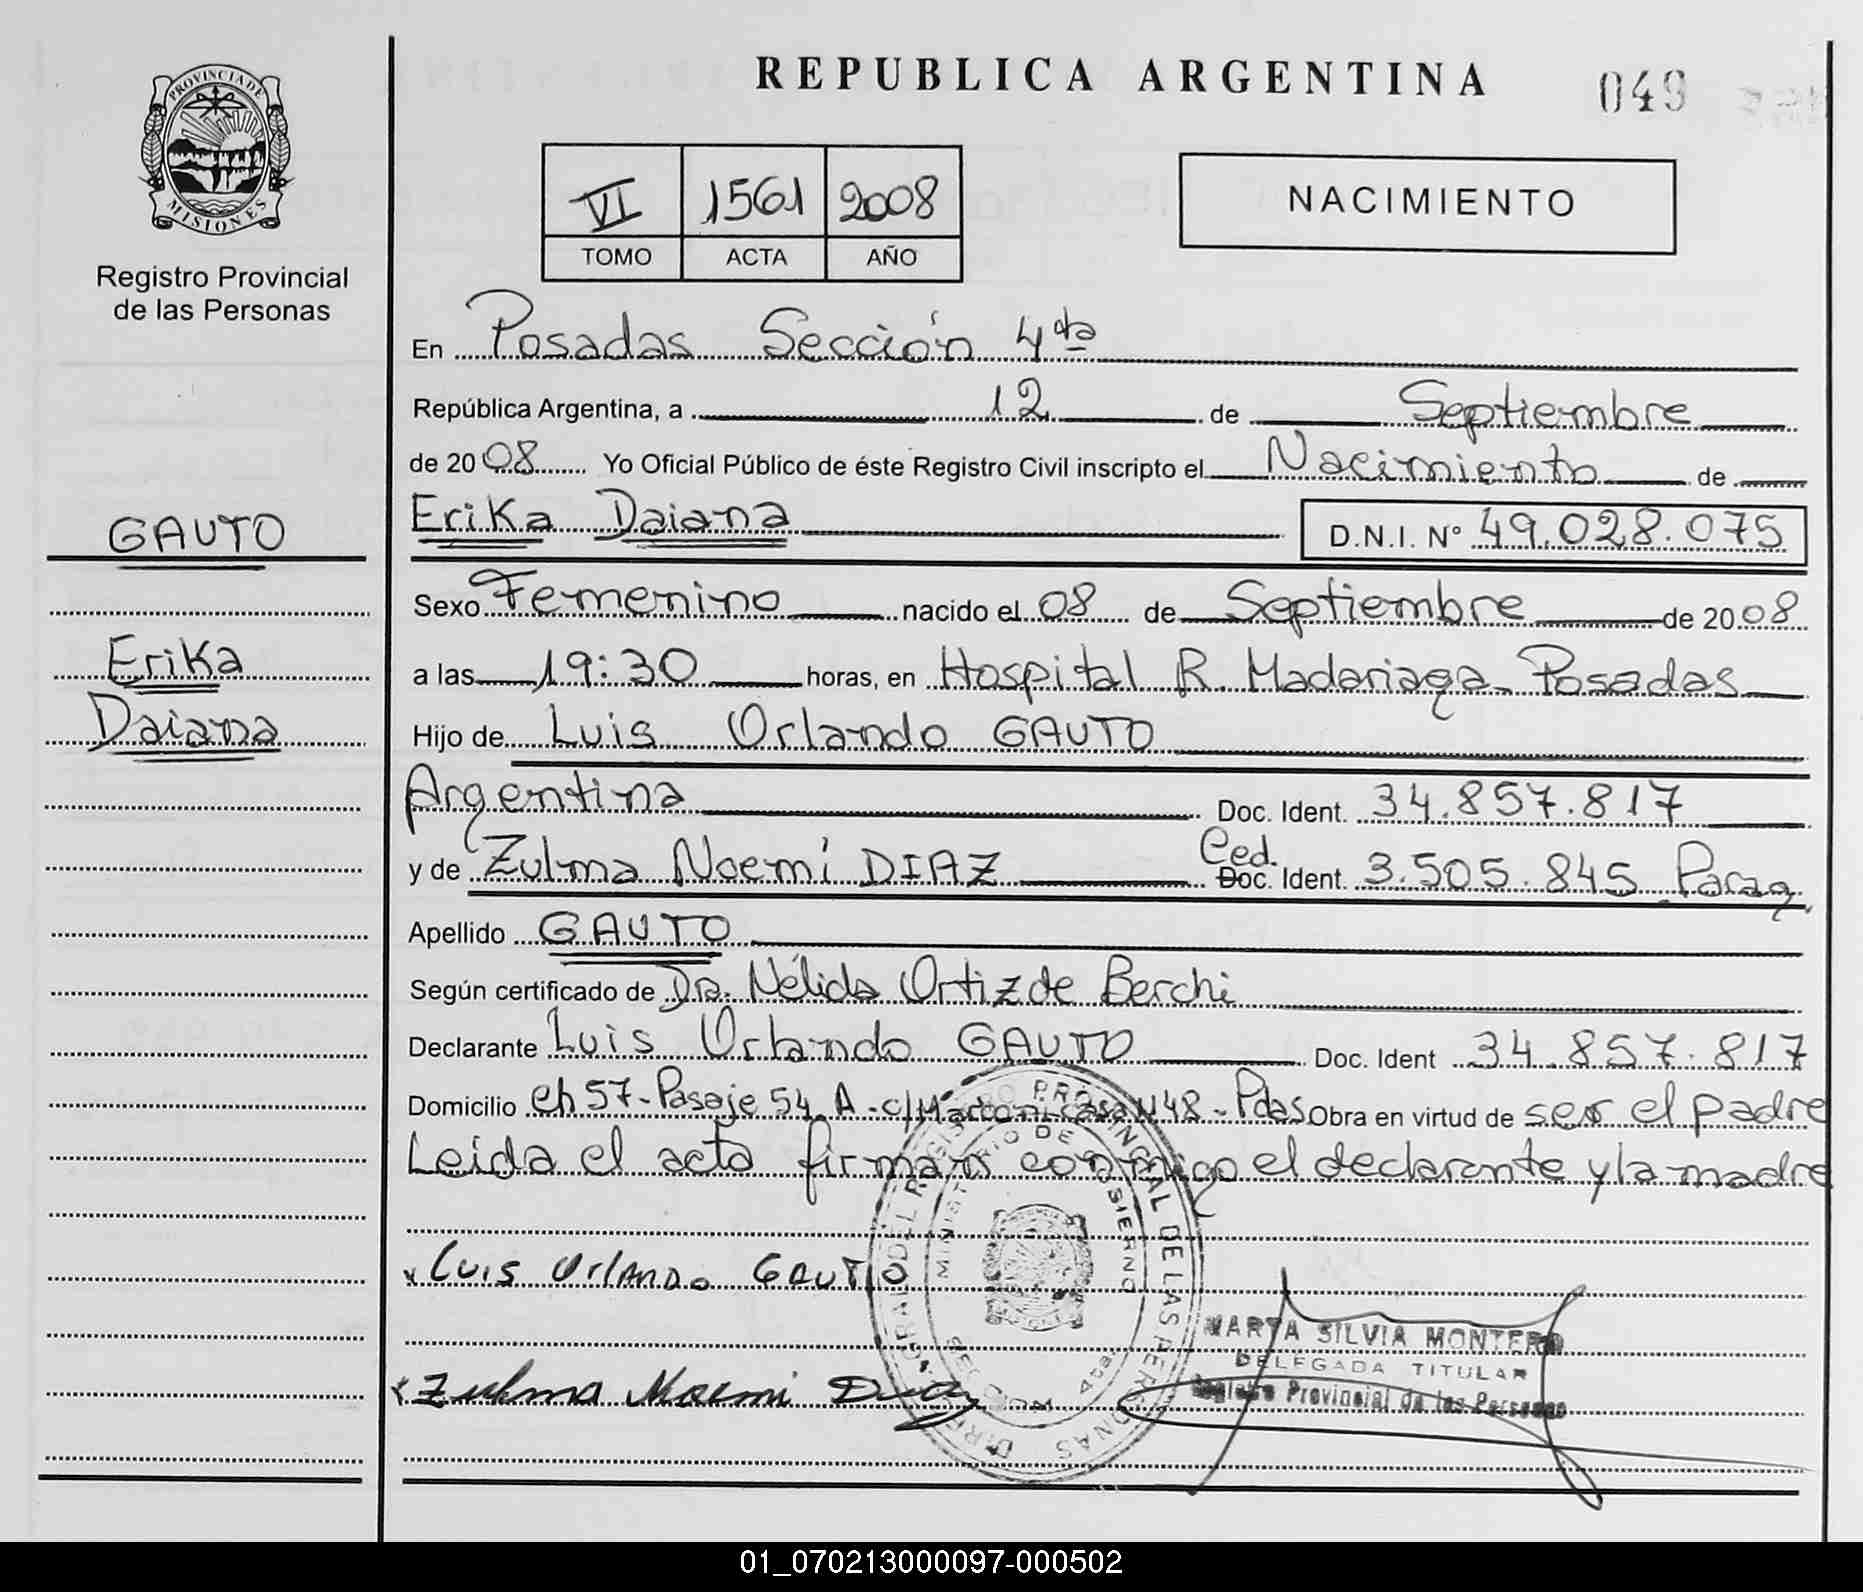 REPUBLICA ARGENTINA
049
PROVINCIA DE
MISIONES
Registro Provincial
de las Personas
VI 1561 2008
TOMO ACTA AÑO
NACIMIENTO
En Posadas Sección 4ta
República Argentina, a 12 de Septiembre
de 2008 Yo Oficial Público de éste Registro Civil inscripto el Nacimiento de
Erika Daiana D.N.I. Nº 49.028.075
GAUTO
Erika
Daiana
Sexo Femenino nacido el 08 de Septiembre de 2008
a las 19:30 horas, en Hospital R. Madariaga - Posadas
Hijo de Luis Orlando GAUTO
Argentina Doc. Ident. 34.857.817
Ced.
y de Zulma Noemí DIAZ Doc. Ident. 3.505.845 Parag.
Apellido GAUTO
Según certificado de Dra. Nélida Ortiz de Berchi
Declarante Luis Orlando GAUTO Doc. Ident 34.857.817
Domicilio Ch 57 - Pasaje 54 A - c/Marconi casa Nº 48 - Pdas Obra en virtud de ser el padre
Leida el acta firman conmigo el declarante y la madre
x Luis Orlando GAUTO
x Zulma Noemi Diaz
MARTA SILVIA MONTERO
DELEGADA TITULAR
Registro Provincial de las Personas
REGISTRO PROVINCIAL DE LAS PERSONAS
MINISTERIO DE GOBIERNO
01_070213000097-000502